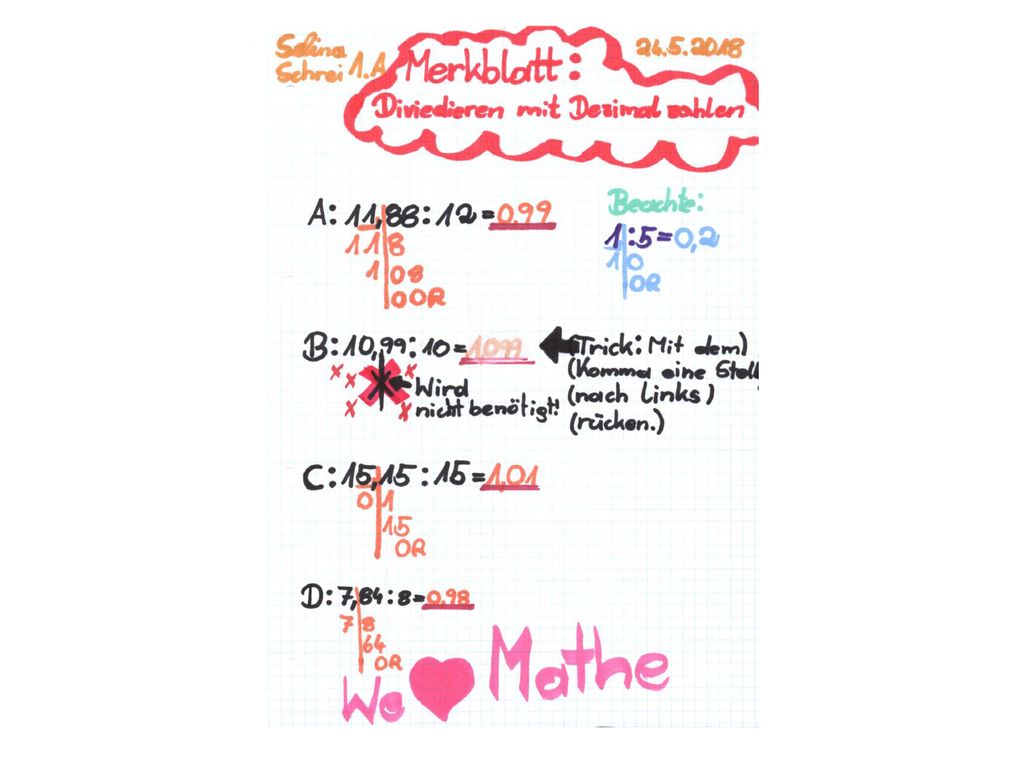 Selina
Schrei 1.A
24.5.2018
Merkblatt:
Diviedieren mit Dezimalzahlen
A: 11,88 : 12 = 0,99
118
108
00R
Beachte:
1 : 5 = 0,2
10
0R
B: 10,99 : 10 = 1,099
(Trick: Mit dem)
(Komma eine Stell
(nach links)
(rücken.)
Wird
nicht benötigt!
C: 15,15 : 15 = 1,01
01
15
0R
D: 7,84 : 8 = 0,98
78
64
0R
We ♥ Mathe